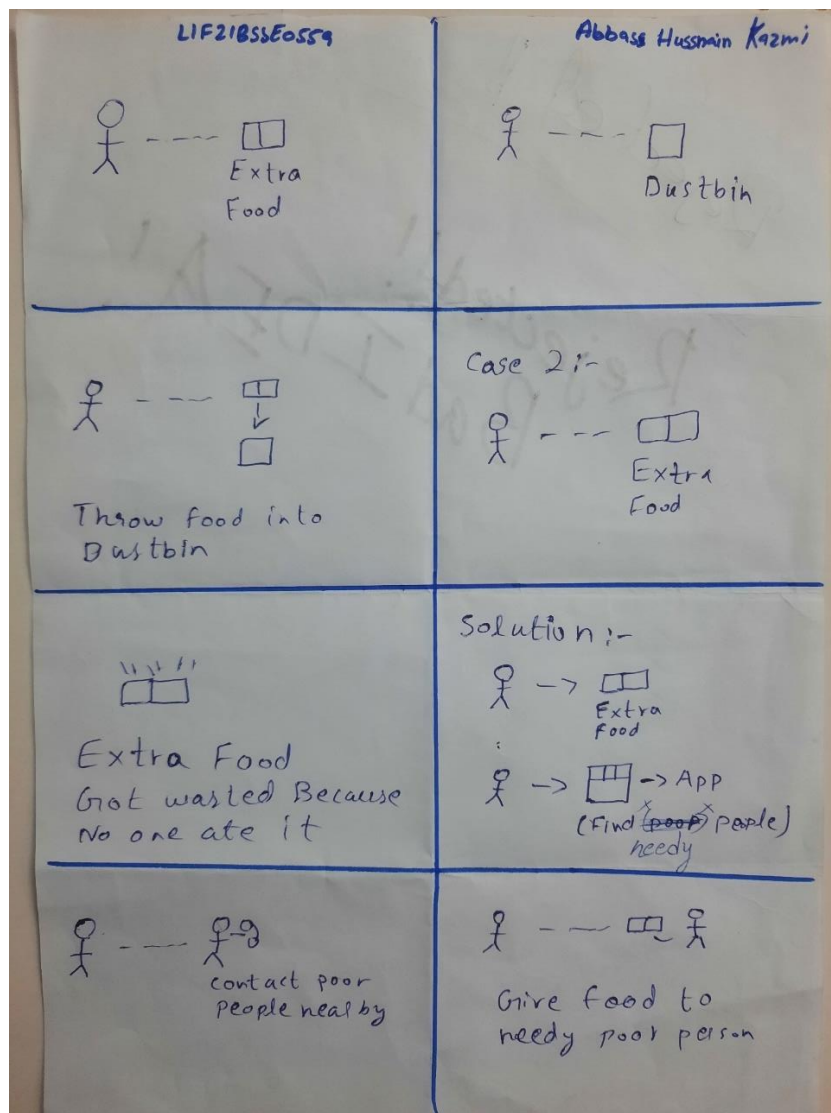 L1F21BSSE0559
Abbass Hussnain Kazmi
Extra
Food
Dustbin
Throw food into
Dustbin
Case 2:-
Extra
Food
Extra Food
Got wasted Because
No one ate it
Solution:-
Extra
Food
App
(Find poor people)
needy
contact poor
people nearby
Give food to
needy poor person